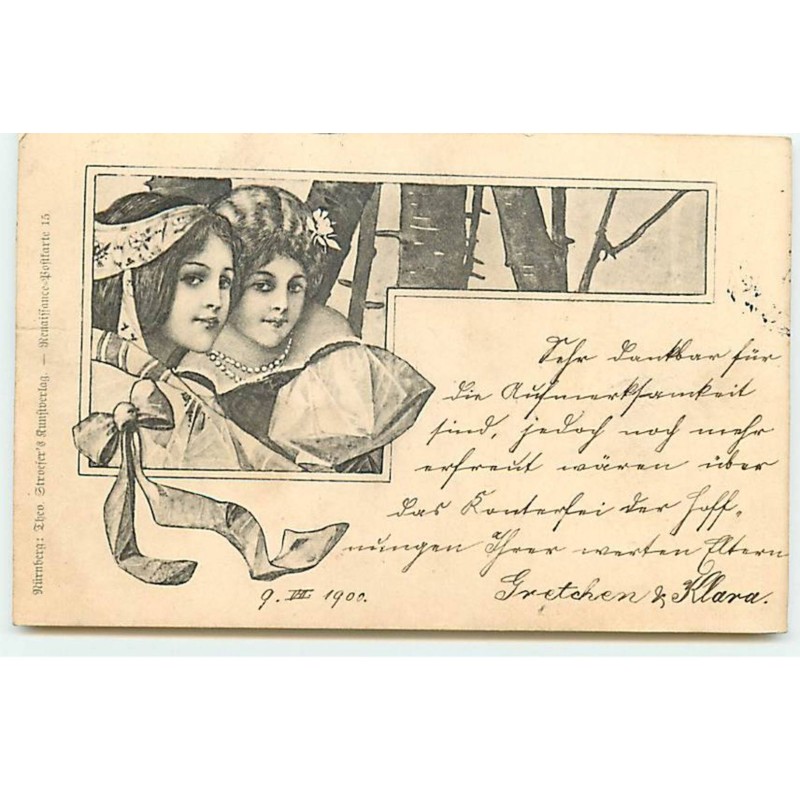 Nürnberg: Theo. Stroefer's Kunstverlag. — Renaissance-Postkarte 15
Sehr dankbar für
die Aufmerksamkeit
sind, jedoch noch mehr
erfreut wären über
das Konterfei der Hoff-
nungen Ihrer werten Eltern
Gretchen & Klara.
9. VII 1900.